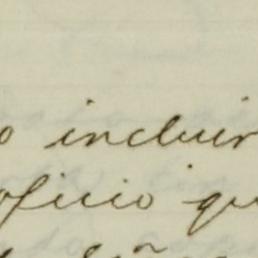 o incluir
oficio qu